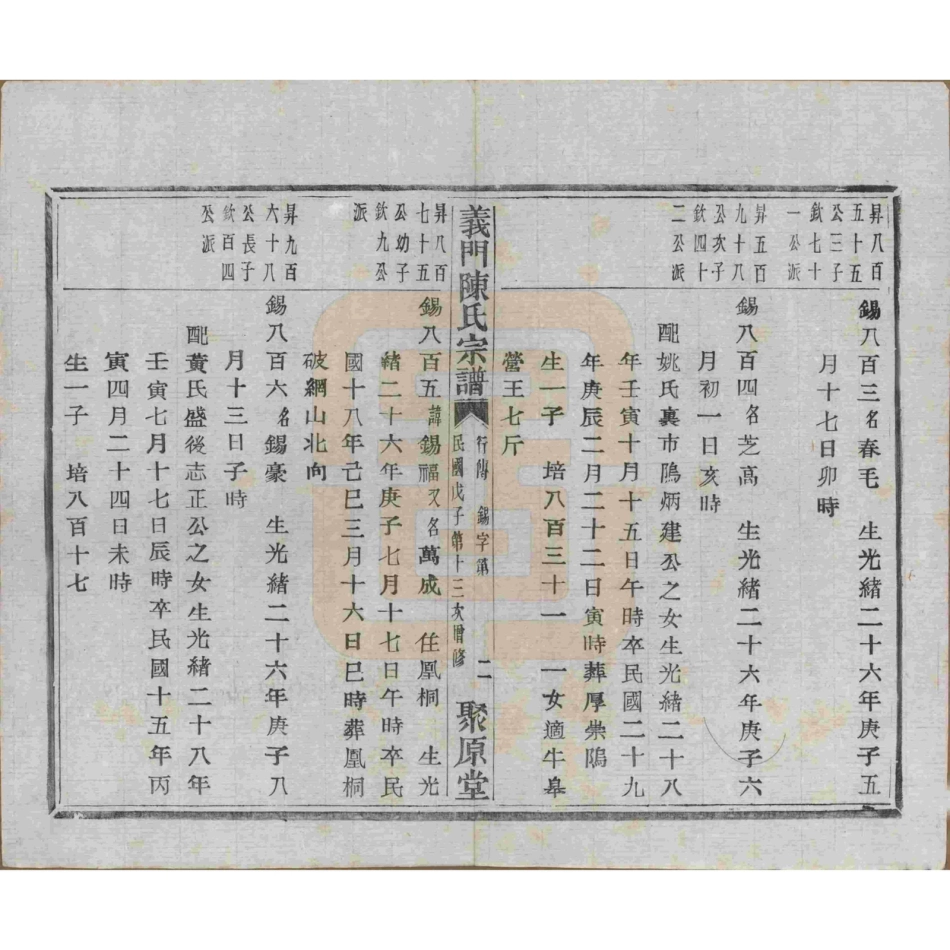 昇八百
五十五
公三子
欽七十
一公派
錫八百三名春毛　生光緒二十六年庚子五
月十七日卯時
昇五百
九十八
公次子
欽四十
二公派
錫八百四名芝高　生光緒二十六年庚子六
月初一日亥時
配姚氏裏市隖炳建公之女生光緒二十八
年壬寅十月十五日午時卒民國二十九
年庚辰二月二十二日寅時葬厚崇隖
生一子　培八百三十一　一女適牛皋
營王七斤
義門陳氏宗譜
行傳　錫字第　二
民國戊子第十三次增修
聚原堂
昇八百
七十五
公幼子
欽九公
派
錫八百五諱錫福又名萬成　住凰桐　生光
緒二十六年庚子七月十七日午時卒民
國十八年己巳三月十六日巳時葬凰桐
破網山北向
昇九百
六十八
公長子
欽百四
公派
錫八百六名錫豪　生光緒二十六年庚子八
月十三日子時
配黃氏盛後志正公之女生光緒二十八年
壬寅七月十七日辰時卒民國十五年丙
寅四月二十四日未時
生一子　培八百十七